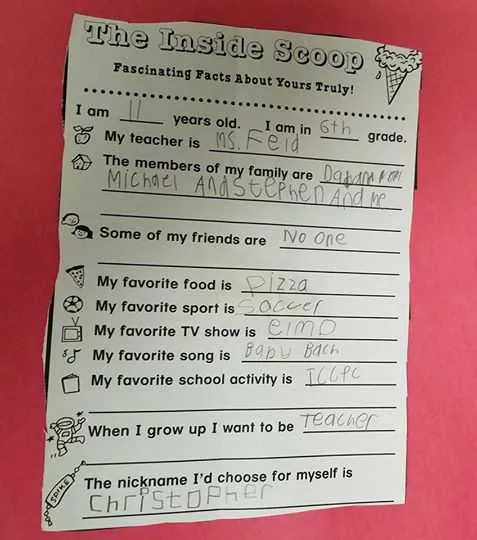 The Inside Scoop
Fascinating Facts About Yours Truly!
I am 11 years old. I am in 6th grade.
My teacher is Ms. Feld
The members of my family are
Michael And Stephen And me
Some of my friends are No one
My favorite food is pizza
My favorite sport is Soccer
My favorite TV show is elmo
My favorite song is Baby Bach
My favorite school activity is
When I grow up I want to be Teacher
SPIKE
The nickname I'd choose for myself is
Christopher